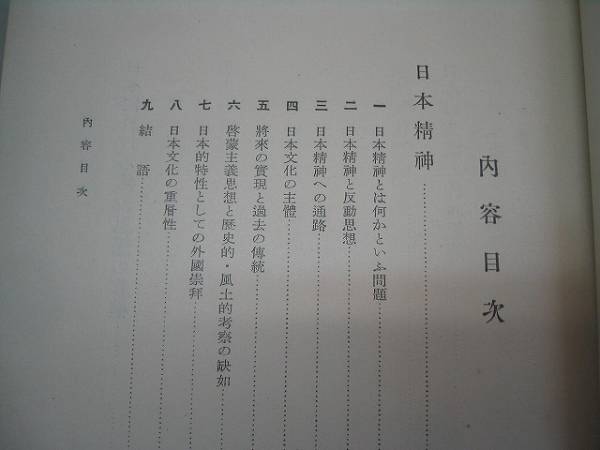 內容目次
日本精神
一 日本精神とは何かといふ問題
二 日本精神と反動思想
三 日本精神への通路
四 日本文化の主體
五 將來の實現と過去の傳統
六 啓蒙主義思想と歷史的・風土的考察の缺如
七 日本的特性としての外國崇拜
八 日本文化の重層性
九 結語
內容目次